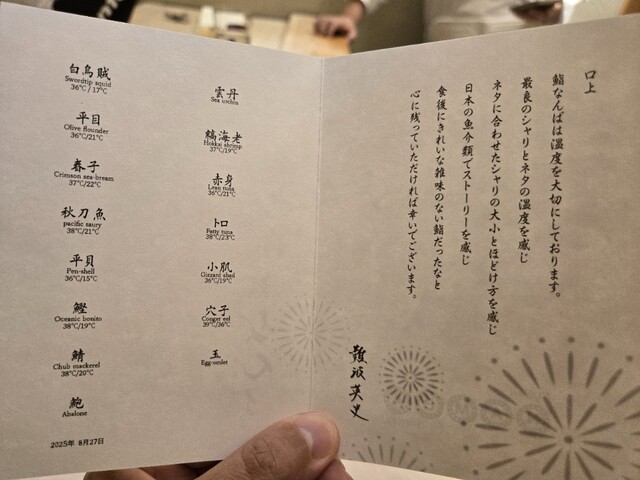 白烏賊
Swordtip squid
36℃/17℃
平目
Olive flounder
36℃/21℃
春子
Crimson sea-bream
37℃/22℃
秋刀魚
pacific saury
38℃/21℃
平貝
Pen-shell
36℃/15℃
鰹
Oceanic bonito
38℃/19℃
鯖
Chub mackerel
38℃/20℃
鮑
Abalone
2025年 8月27日
雲丹
Sea urchin
縞海老
Hokkai shrimp
37℃/19℃
赤身
Lean tuna
36℃/21℃
トロ
Fatty tuna
38℃/23℃
小肌
Gizzard shad
36℃/19℃
穴子
Conger eel
39℃/36℃
玉
Egg omlet
口上
鮨なんばは温度を大切にしております。
最良のシャリとネタの温度を感じ
ネタに合わせたシャリの大小とほどけ方を感じ
日本の魚介類でストーリーを感じ
食後にきれいな雑味のない鮨だったなと
心に残っていただければ幸いでございます。
難波英史